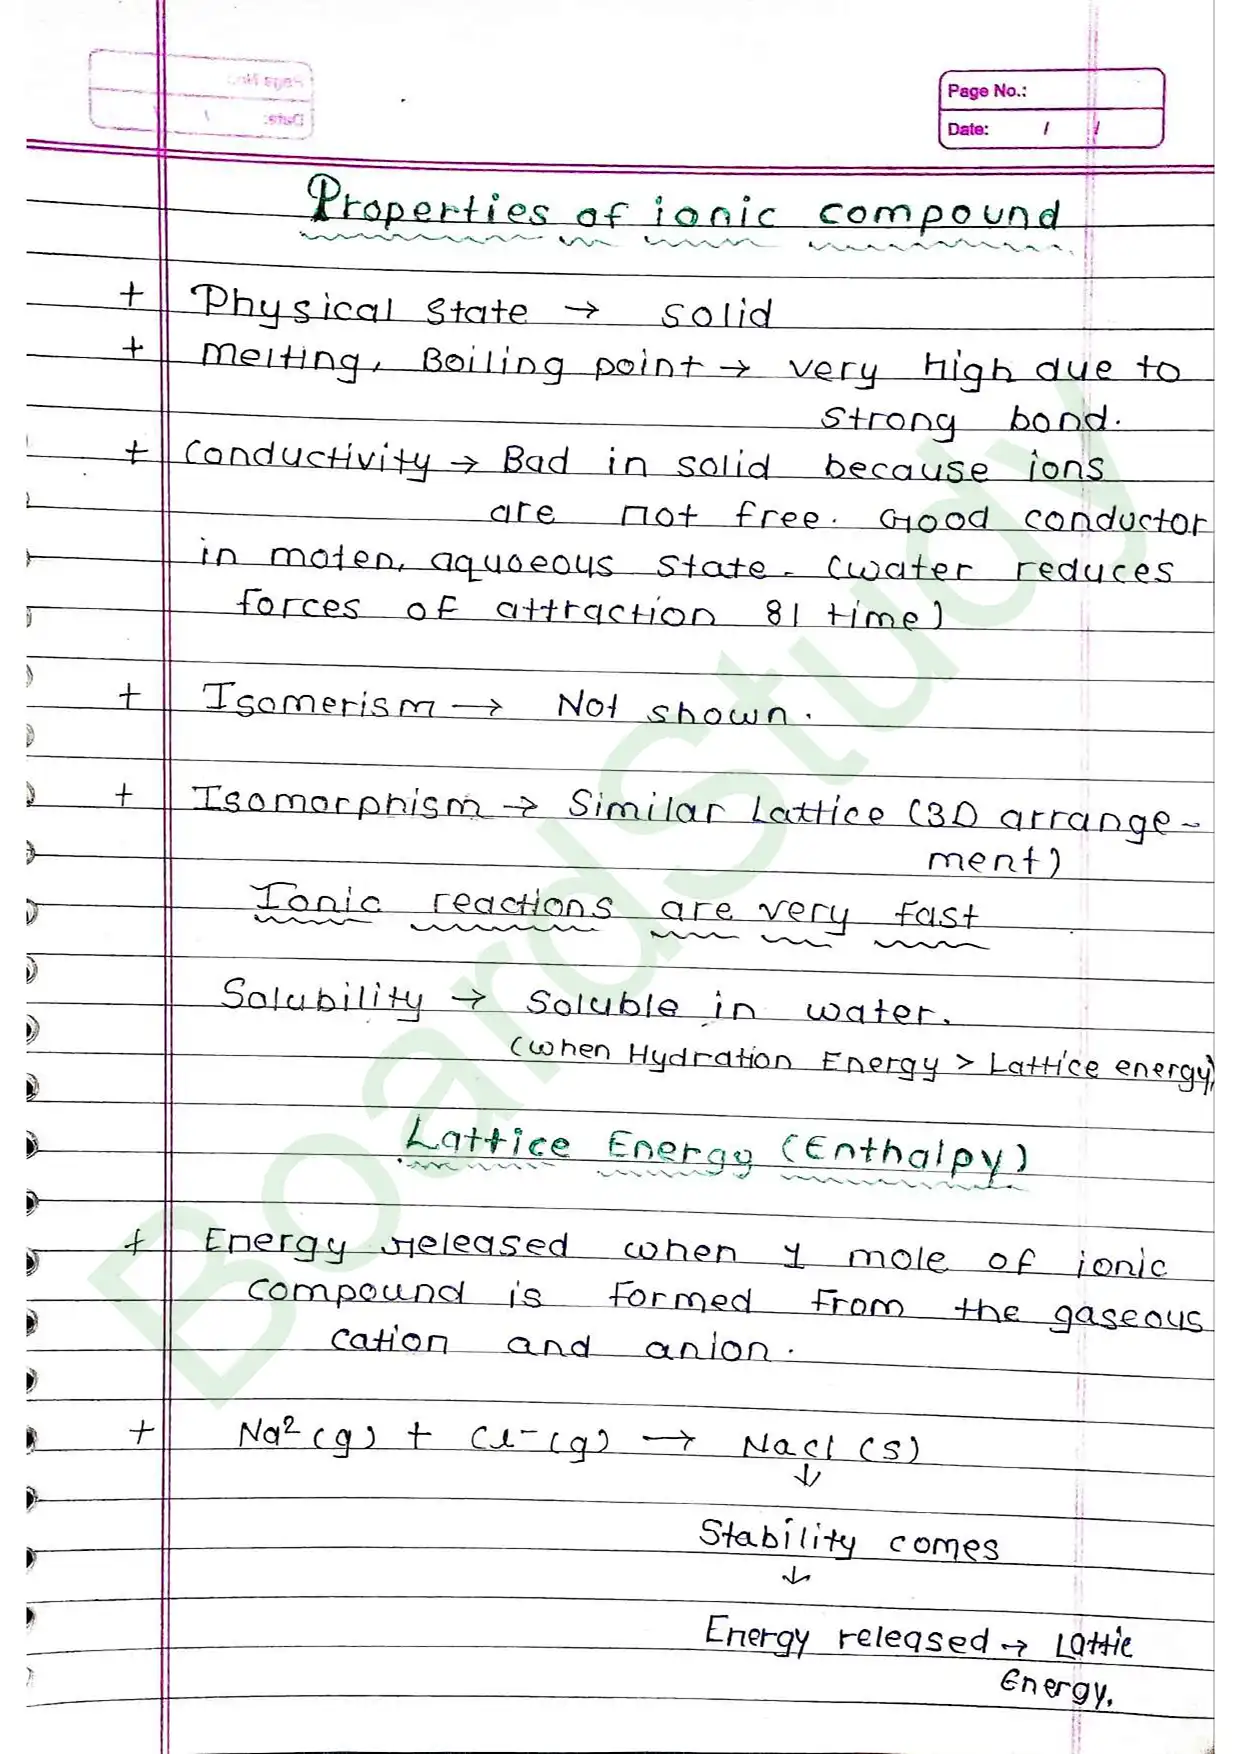 Page No.:
Date: / /
Properties of ionic compound
+ Physical State → solid
+ melting, Boiling point → very high due to
strong bond.
+ Conductivity → Bad in solid because ions
are not free. Good conductor
in moten, aquoeous state. (water reduces
forces of attraction 81 time)
+ Isomerism → Not shown.
+ Isomorphism → Similar Lattice (3D arrange-
ment)
Ionic reactions are very fast
Solubility → soluble in water.
(when Hydration Energy > Lattice energy)
Lattice Energy (Enthalpy)
+ Energy released when 1 mole of ionic
compound is formed from the gaseous
cation and anion.
+ Na² (g) + Cl⁻ (g) → NaCl (s)
↓
Stability comes
↓
Energy released → Lattic
Energy.
BoardStudy